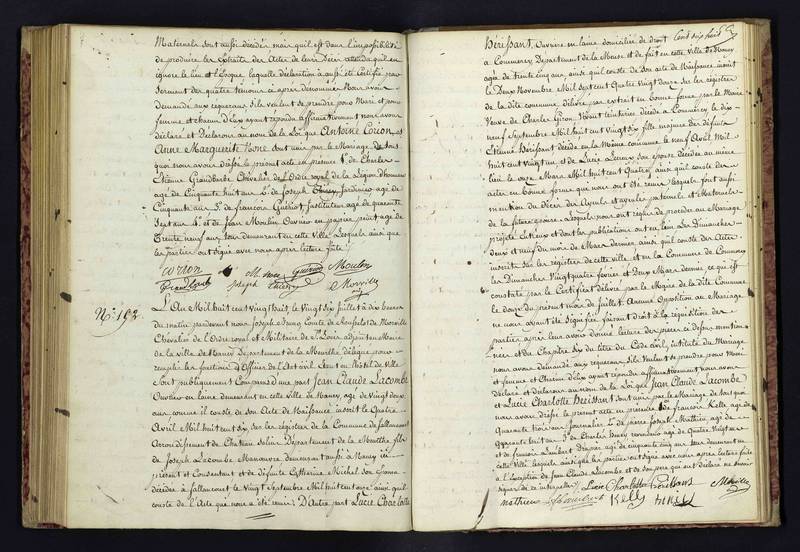 Maternels sont aussi décédés mais qu'il est dans l'impossibilité
de produire les Extraits des Actes de leurs Décès attendu qu'il en
ignore le lieu et l'Epoque, laquelle déclaration a aussi été certifié par
serment des quatre témoins ci après dénommés Nous avons
demandé aux requérans s'ils veulent se prendre pour Mari et pour
femme et chacun d'Eux ayant répondu affirmativement nous avons
déclaré et Déclarons au nom de la Loi que Antoine Cornon et
Anne Marguerite sont unis par le Mariage de tout
quoi nous avons Dressé le présent acte en présence 1° de Charles
Etienne Grandbarbe Chevalier de l'Ordre royal de la Légion d'honneur
agé de Cinquante huit ans 2° de Joseph Thiery Jardinier agé de
Cinquante ans 3° de françois Guériot, Instituteur agé de quarante
Sept ans 4° et de Jean Moulin Ouvrier en papier peint agé de
Trente neuf ans tous demeurant en cette Ville Lesquels ainsi que
les parties ont Signé avec nous après lecture faite
Cornon Moulin
Joseph Thiery Morville
N°. 192.
L'An Mil huit cent Vingt huit, le Vingt Six Juillet à dix heures
du matin pardevant nous Joseph Comte de de Morville
Chevalier de l'Ordre royal et Militaire de St Louis adjoint au Maire
de la ville de Nancy Département de la Meurthe délégué pour
remplir les fonctions d'Officier de l'Etat civil Sont en l'hôtel de Ville
Sont publiquement Comparus d'une part Jean Claude Lacombe
Ouvrier en laine demeurant en cette Ville de Nancy, agé de Vingt deux
ans comme il conste de son Acte de Naissance inscrit le Quatre
Avril Mil huit cent Six, sur les régistres de la Commune de fallancourt
Arrondissement de Château Salins Département de la Meurthe, fils
de Joseph Lacombe Manœuvre demeurant aussi à Nancy ici
présent et Consentant et de défunte Catherine Michel son Epouse
décédée à fallancourt le Vingt Septembre Mil huit cent ainsi qu'il
conste de l'Acte que nous a été remis D'Autre part Lucie Charlotte
Cent six huit
Hérissant, Ouvrière en laine domiciliée de droit
à Commercy Département de la Meuse et de fait en cette Ville de Nancy
agée de trente cinq ans, ainsi qu'il conste de son acte de Naissance inscrit
le Deux Novembre Mil Sept cent Quatre Vingt Douze sur les régistres
de la dite commune délivré par extrait en bonne forme par le Maire
Veuve de Charles Giron, Vivant teinturier décédé à Commercy le dix
neuf Septembre Mil huit cent Vingt Six fille majeure des défunts
Etienne Hérissant décédé en la Même commune le neuf Avril Mil
huit cent Vingt un, et de Lucie Leroux son épouse décédée au même
lieu le onze Mars Mil huit cent Quatre, ainsi qu'il conste des
actes en bonne forme que nous ont été remis lesquels font aussi
mention du Décès des Ayeuls et ayeules paternels et Maternels
de la future épouse. Lesquels nous ont requis de procéder au Mariage
projeté Entreux et dont les publications ont eu lieu Les Dimanches
deux et neuf du mois de Mars Dernier ainsi qu'il conste des Actes
inscrits sur les régistres de cette ville et en la Commune de Commercy
les dimanches Vingt quatre fevrier et Deux Mars dernier ce qui est
constaté par le Certificat délivré par le Maire de la dite Commune
le douze du présent mois de Juillet. Aucune Opposition au Mariage
ne nous ayant été Signifiée faisant droit à la réquisition des
parties après leur avoir donné lecture des pièces ci dessus mention
nées et du Chapitre Six du titre du Code civil intitulé du Mariage
nous avons demandé aux requérans s'ils Veulent se prendre pour Mari
et femme et Chacun d'Eux ayant répondu affirmativement nous avons
déclaré et déclarons au nom de la Loi que Jean Claude Lacombe
et Lucie Charlotte Hérissant Sont unis par le Mariage de tout quoi
nous avons dressé le présent acte en présence 1° de francois Kelle agé de
Quarante trois ans Journalier 2° de Pierre Joseph Mathieu agé de
Quarante huit ans 3° de Charles agé de Quatre Vingt
et de francois Lambert Drapier agé de cinquante cinq ans tous demeurant en
cette Ville lesquels ainsi que les parties ont Signé avec nous après lecture faite
à l'Exception de Jean Claude Lacombe et de son père qui ont déclaré ne savoir
signer de ce interpellés Lucie Charlotte Hérissant Morville
mathieu Kelle